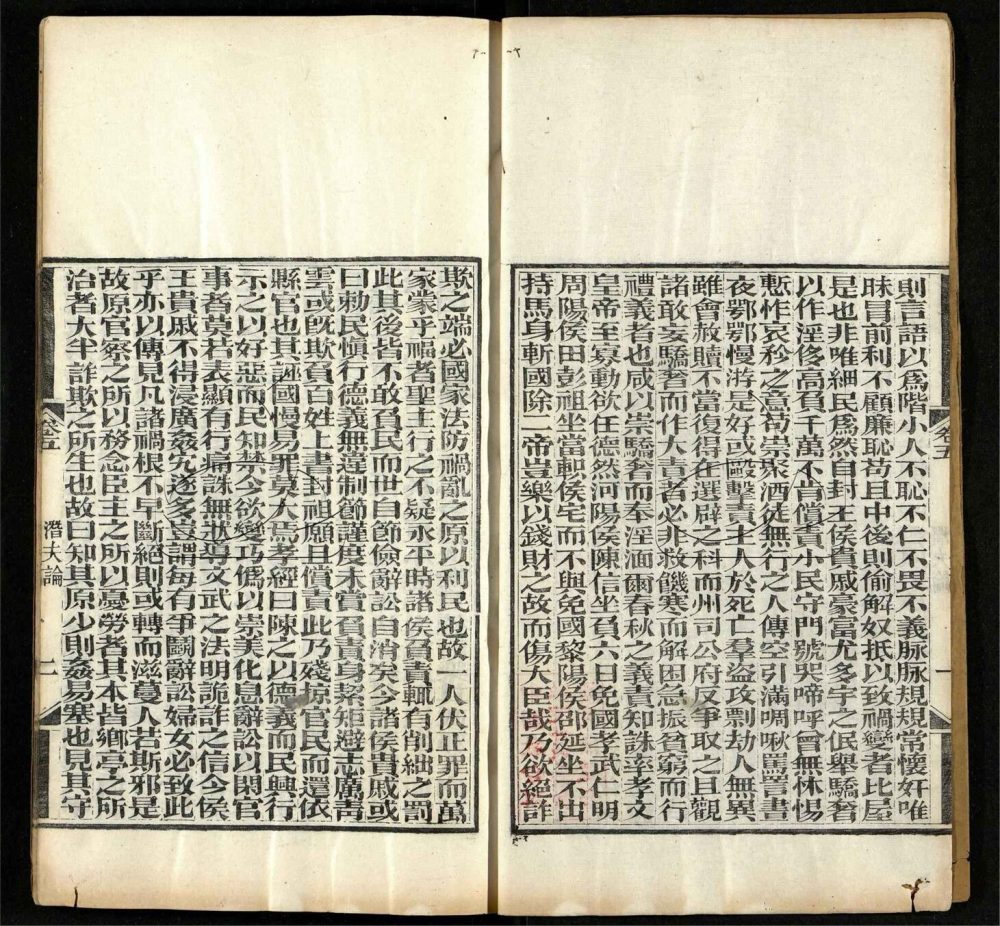 則言語以爲階小人不恥不仁不畏不義脉脉規規常懷奸唯
昧冒前利不顧廉恥苟且中後則偷解奴抵以致禍變者比屋
是也非唯細民爲然自封王侯貴戚豪富尤多有之假舉驕奢
以作淫侈高負千萬不肯償責小民守門號哭啼呼曾無怵惕
慙怍哀矜之意苟崇聚酒徒無行之人傳空引滿啁啾罵詈晝
夜鄂鄂慢游是好或毆擊責主人於死亡羣盜攻剽劫人無異
雖會赦贖不當復得在選辟之科而州司公府反爭取之且觀
諸敢妄驕奢而作大責者必非救饑寒而解困急振貧窮而行
禮義者也咸以崇驕奢而奉淫湎爾春秋之義責知誅率孝文
皇帝至寡動欲任德然河陽侯陳信坐負六日免國孝武仁明
周陽侯田彭祖坐當軹侯宅而不與免國黎陽侯邵延坐不出
持馬身斬國除二帝豈樂以錢財之故而傷大臣哉乃欲絕詐
欺之端必國家法防禍亂之原以利民也故一人伏正罪而萬
家蒙乎福者聖主行之不疑永平時諸侯負責輒有削絀之罰
此其後皆不敢負民而世自節儉辭訟自消矣今諸侯貴戚或
曰勅民愼行德義無違制節謹度未嘗負責身絜矩避志厲靑
雲或旣欺負百姓上書封祖願且償責此乃殘掠官民而還依
縣官也其誣國慢易罪莫大焉孝經曰陳之以德義而民興行
示之以好惡而民知禁今欲變巧僞以崇美化息辭訟以閑官
事者莫若表顯有行痛誅無狀導文武之法明詭詐之信今侯
王貴戚不得浸廣姦宄遂多豈謂每有爭鬭辭訟婦女必致此
乎亦以傳見凡諸禍根不早斷絕則或轉而滋蔓人若斯邪是
故原官察之所以務念臣主之所以憂勞者其本皆鄉亭之所
治者大半詐欺之所生也故曰知其原少則姦易塞也見其守
卷五
潛夫論
二
卷五